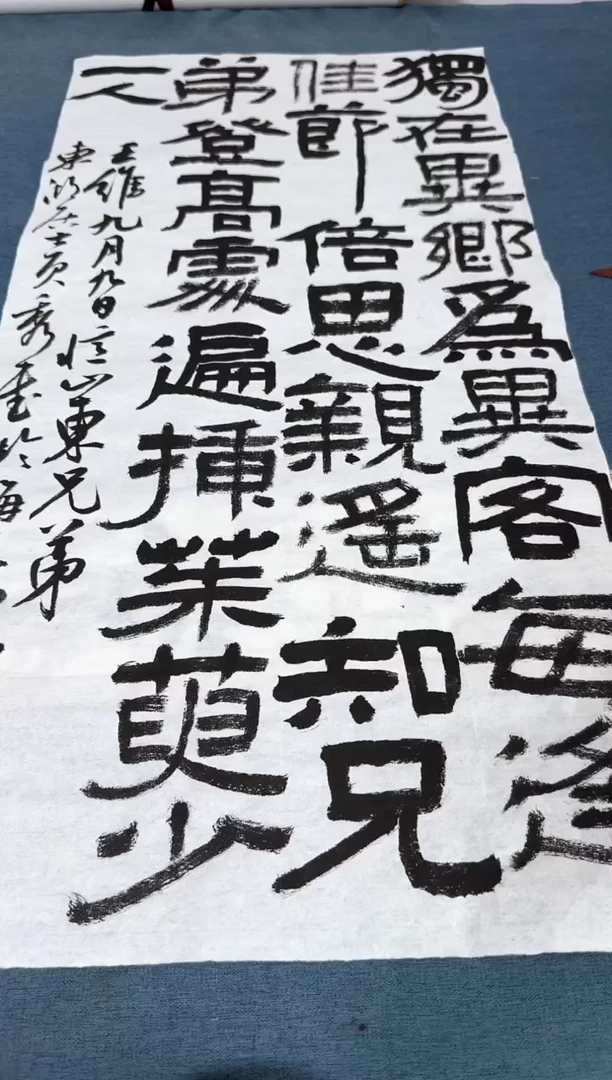 獨在異鄉爲異客每逢
佳節倍思親遙知兄
弟登高處遍揷茱萸少
一人
王維九月九日憶山東兄弟
東湖居士黃秀